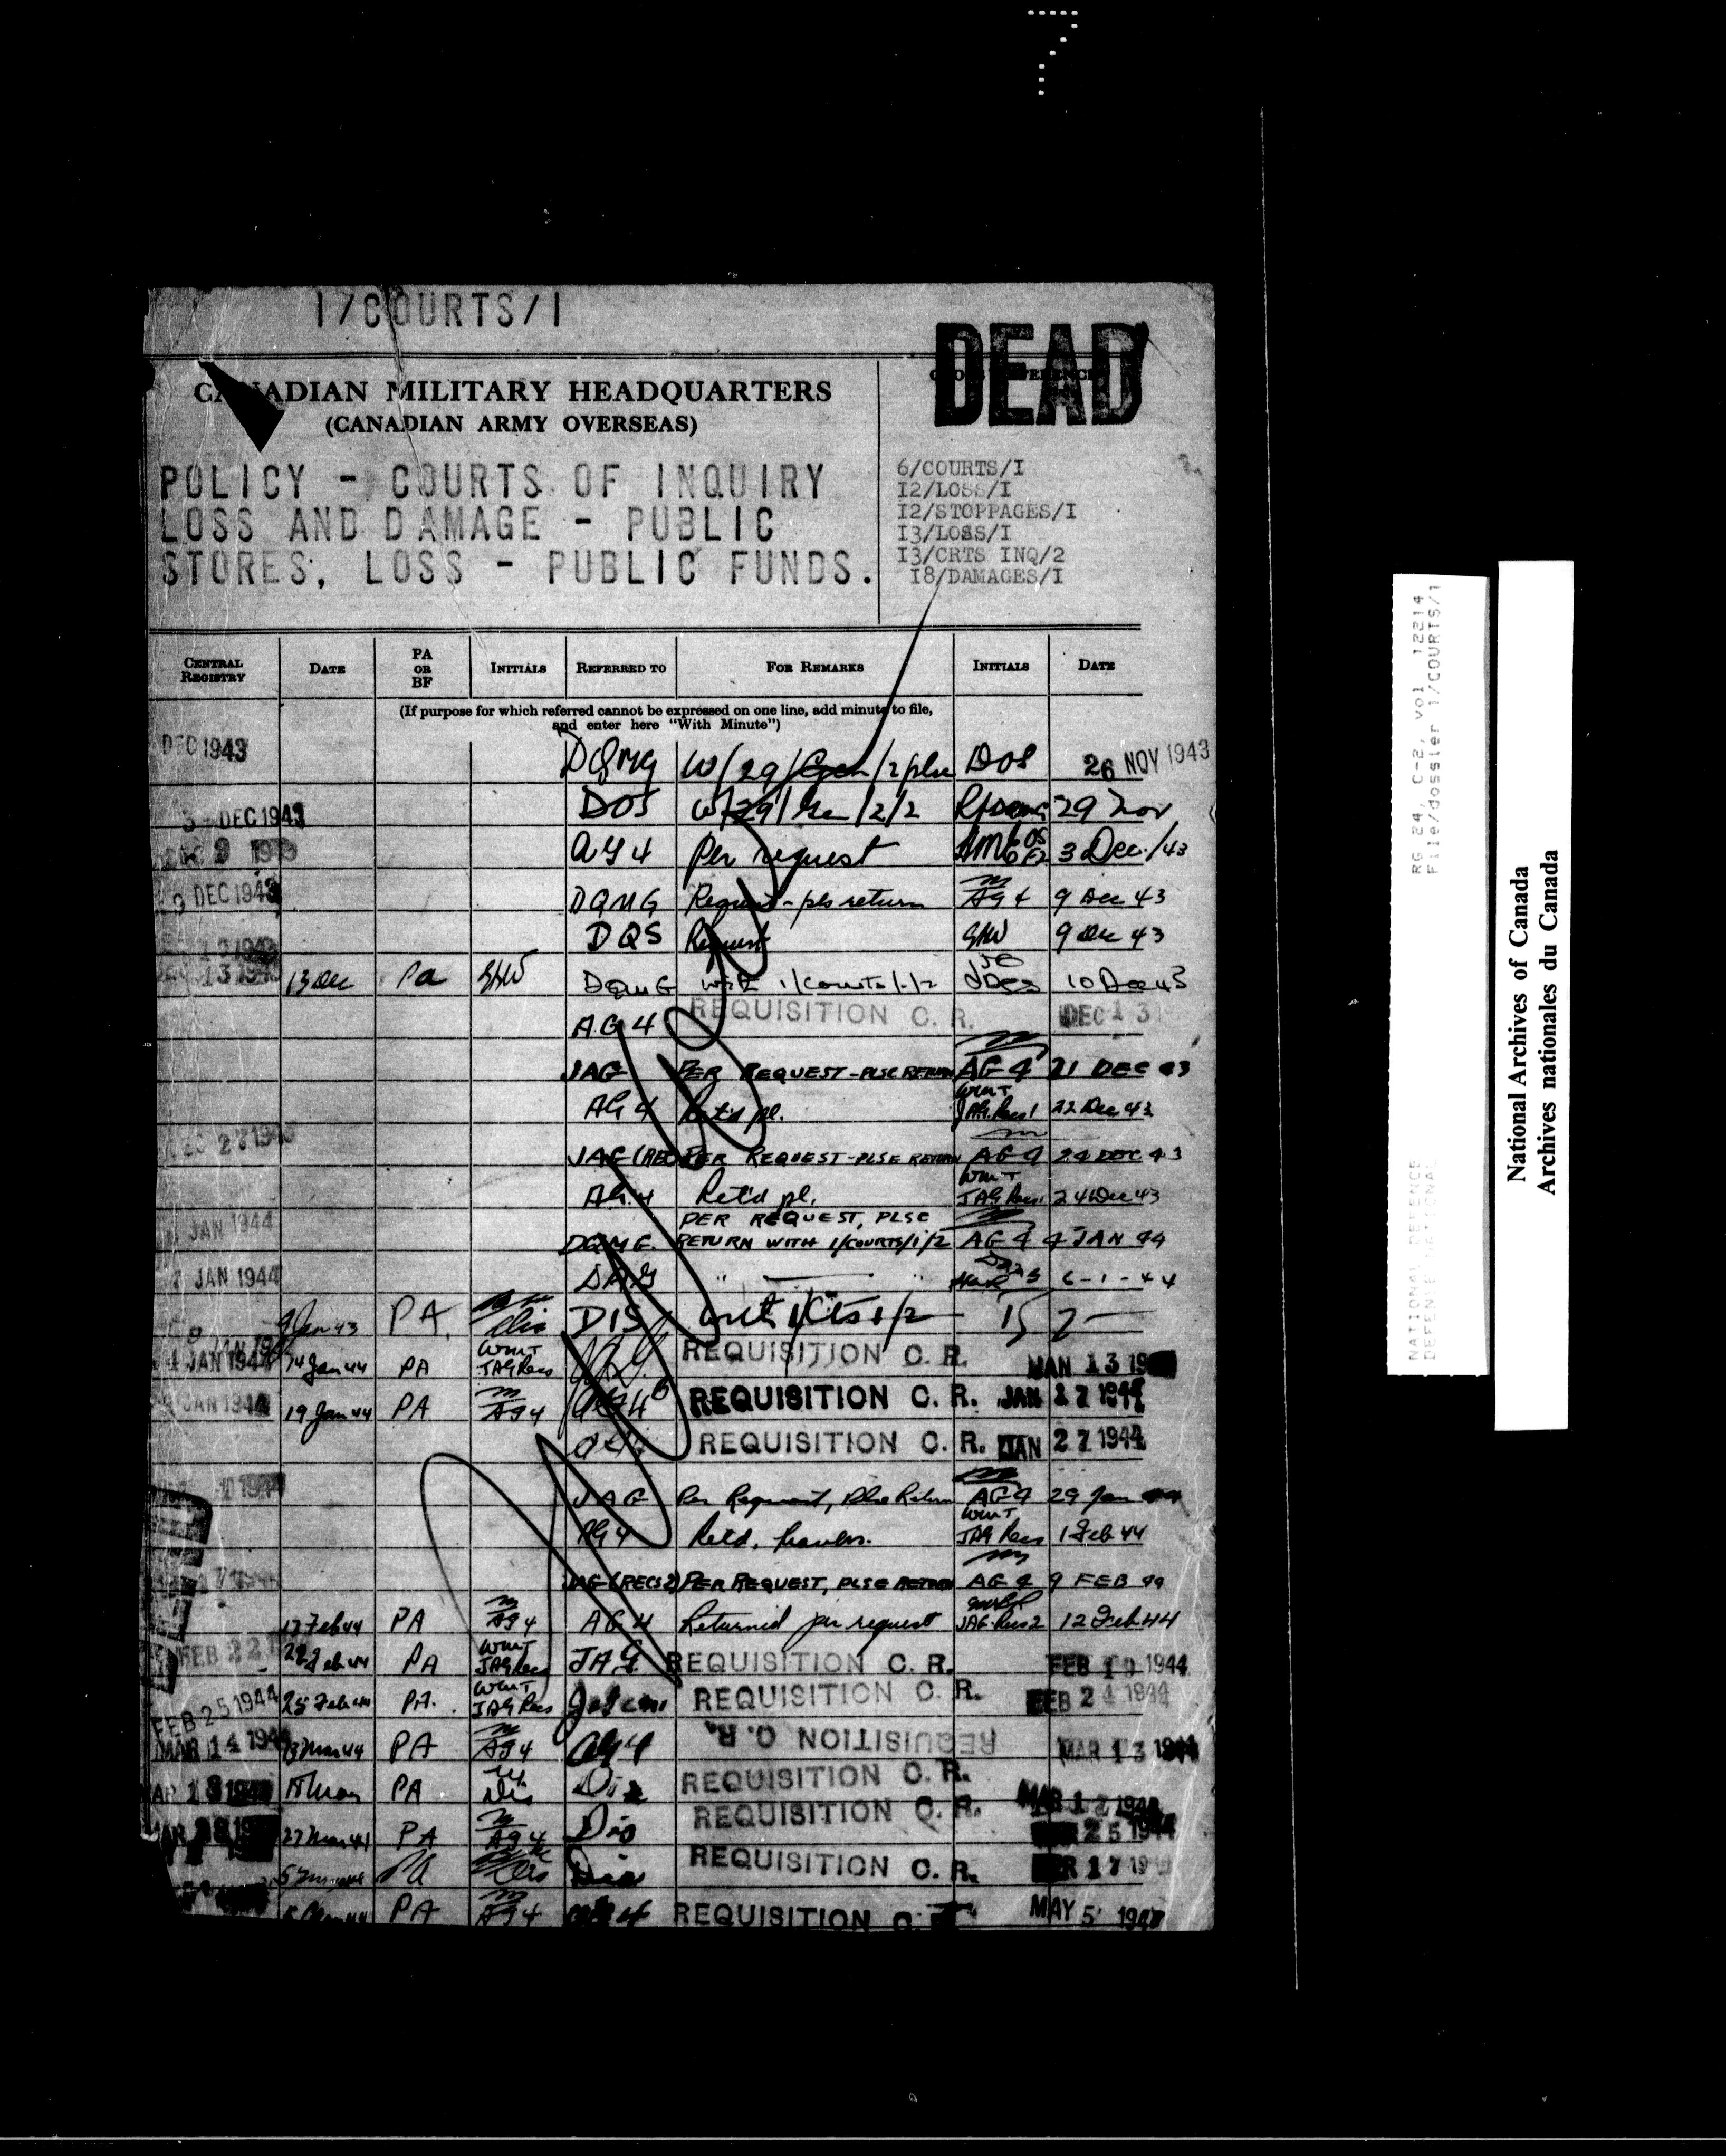 7
1/COURTS/1
DEAD
CANADIAN MILITARY HEADQUARTERS
(CANADIAN ARMY OVERSEAS)
POLICY - COURTS OF INQUIRY
LOSS AND DAMAGE - PUBLIC
STORES, LOSS - PUBLIC FUNDS.
6/COURTS/I
I2/LOSS/I
I2/STOPPAGES/I
I3/LOSS/I
I3/CRTS INQ/2
I8/DAMAGES/I
CENTRAL REGISTRY DATE PA OR BF INITIALS REFERRED TO FOR REMARKS INITIALS DATE
(If purpose for which referred cannot be expressed on one line, add minute to file,
and enter here "With Minute")
DEC 1943 DQMG W/29/Gen/2 plse DOS 26 NOV 1943
3 - DEC 1943 DOS W/29/Gen/2/2 29 Nov
AG 4 Per request 3 Dec/43
9 DEC 1943 DQMG Request - pls return AG 4 9 Dec 43
DQS Request GHW 9 Dec 43
13 Dec Pa GHW DQMG with 1/Courts/1/2 10 Dec 43
AG 4 REQUISITION C. R. DEC 13
JAG PER REQUEST - PLSE RETURN AG 4 21 DEC 43
AG 4 Ret'd pl. WMT JAG Recs 1 22 Dec 43
DEC 27 1943 JAG (REC PER REQUEST - PLSE RETURN AG 4 24 DEC 43
AG 4 Ret'd pl. WMT JAG Recs 1 24 Dec 43
JAN 1944 PER REQUEST, PLSE
DQMG. RETURN WITH 1/COURTS/1/2 AG 4 4 JAN 44
JAN 1944 DAG " " 6-1-44
9 Jan 43 PA. Dis DIS with 1/Cts 1/2 7
JAN 1944 14 Jan 44 PA WMT JAG Recs JAG REQUISITION C. R. JAN 13 19
JAN 1944 19 Jan 44 PA AG 4 AG 4 REQUISITION C. R. JAN 17 1944
REQUISITION C. R. JAN 27 1944
JAG Per Request, Plse Return AG 4 29 Jan
AG 4 Retd, thanks. WMT JAG Recs 1 Feb 44
JAG (RECS 2) PER REQUEST, PLSE RETURN AG 4 9 FEB 44
17 Feb 44 PA AG 4 AG 4 Returned per request JAG Recs 2 12 Feb 44
FEB 22 22 Feb 44 PA WMT JAG Recs JAG REQUISITION C. R. FEB 19 1944
FEB 25 1944 25 Feb 44 PA. WMT JAG Recs REQUISITION C. R. FEB 24 1944
MAR 14 1944 13 Mar 44 PA AG 4 AG 4 REQUISITION C. R. MAR 13 1944
MAR 18 1944 PA Dis Dis REQUISITION C. R. MAR 17 1944
27 Mar 44 PA AG 4 Dis REQUISITION C. R. MAR 25 1944
PA Dis Dis REQUISITION C. R. 17 19
PA AG 4 AG 4 REQUISITION C. R. MAY 5 194
RG 24, C-2, vol 12214
File/dossier 1/COURTS/1
NATIONAL DEFENCE
DEFENSE NATIONALE
National Archives of Canada
Archives nationales du Canada